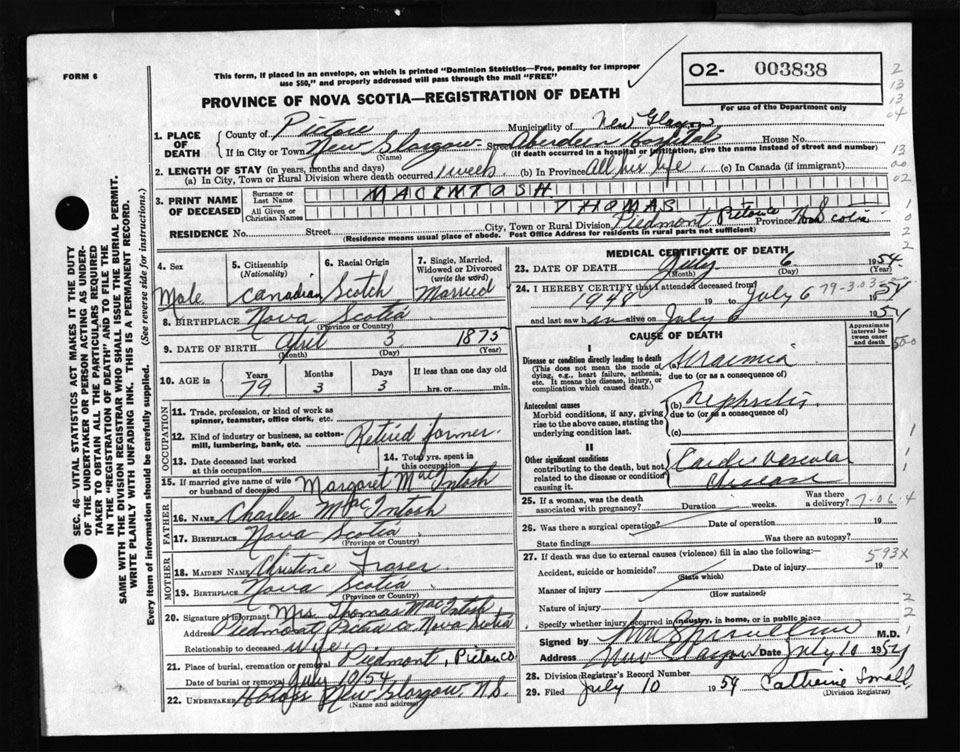 FORM 6
This form, if placed in an envelope, on which is printed "Dominion Statistics—Free, penalty for improper
use $50," and properly addressed will pass through the mail "FREE"
PROVINCE OF NOVA SCOTIA—REGISTRATION OF DEATH
O2- 003838
For use of the Department only
1. PLACE OF DEATH
County of Pictou Municipality of New Glasgow
If in City or Town New Glasgow Street Aberdeen Hospital House No.
(Name) (If death occurred in a hospital or institution, give the name instead of street and number)
2. LENGTH OF STAY (in years, months and days)
(a) In City, Town or Rural Division where death occurred 1 week (b) In Province All his life (c) In Canada (if immigrant)
3. PRINT NAME OF DECEASED
Surname or Last Name MACINTOSH
All Given or Christian Names THOMAS
RESIDENCE No. Street City, Town or Rural Division Piedmont Pictou Co Province N Scotia
(Residence means usual place of abode. Post Office Address for residents in rural parts not sufficient)
4. Sex Male
5. Citizenship (Nationality) Canadian
6. Racial Origin Scotch
7. Single, Married, Widowed or Divorced (write the word) Married
8. BIRTHPLACE Nova Scotia
(Province or Country)
9. DATE OF BIRTH April 3 1875
(Month) (Day) (Year)
10. AGE in Years 79 Months 3 Days 3 If less than one day hrs. or min.
OCCUPATION
11. Trade, profession, or kind of work as spinner, teamster, office clerk, etc.
12. Kind of industry or business, as cotton-mill, lumbering, bank, etc. Retired farmer.
13. Date deceased last worked at this occupation
14. Total yrs. spent in this occupation
15. If married give name of wife or husband of deceased Margaret MacIntosh
FATHER
16. NAME Charles MacIntosh
17. BIRTHPLACE Nova Scotia
(Province or Country)
MOTHER
18. MAIDEN NAME Christine Fraser
19. BIRTHPLACE Nova Scotia
(Province or Country)
20. Signature of informant Mrs. Thomas MacIntosh
Address Piedmont Pictou Co Nova Scotia
Relationship to deceased wife
21. Place of burial, cremation or removal Piedmont, Pictou Co
Date of burial or removal July 10/54
22. Undertaker New Glasgow N.S.
(Name and address)
MEDICAL CERTIFICATE OF DEATH
23. DATE OF DEATH July 6 1954
(Month) (Day) (Year)
24. I HEREBY CERTIFY that I attended deceased from
1948 19 to July 6 1954
and last saw him alive on July 6 1954
CAUSE OF DEATH
Approximate interval between onset and death
I
Disease or condition directly leading to death
(This does not mean the mode of dying, e.g., heart failure, asthenia, etc. It means the disease, injury, or complication which caused death.)
(a) Uraemia
due to (or as a consequence of)
Antecedent causes
Morbid conditions, if any, giving rise to the above cause, stating the underlying condition last.
(b) Nephritis
due to (or as a consequence of)
(c)
II
Other significant conditions
contributing to the death, but not related to the disease or condition causing it.
Cardio Vascular disease
25. If a woman, was the death associated with pregnancy? Duration weeks. Was there a delivery?
26. Was there a surgical operation? Date of operation 19
State findings Was there an autopsy?
27. If death was due to external causes (violence) fill in also the following:—
Accident, suicide or homicide? Date of injury 19
(State which)
Manner of injury
(How sustained)
Nature of injury
Specify whether injury occurred in industry, in home, or in public place
Signed by M.D.
Address New Glasgow Date July 10 1954
28. Division Registrar's Record Number
29. Filed July 10 1954 Catherine Small
(Division Registrar)
SEC. 46—VITAL STATISTICS ACT MAKES IT THE DUTY
OF THE UNDERTAKER OR PERSON ACTING AS UNDER-
TAKER TO OBTAIN ALL THE PARTICULARS REQUIRED
IN THE "REGISTRATION OF DEATH" AND TO FILE THE
SAME WITH THE DIVISION REGISTRAR WHO SHALL ISSUE THE BURIAL PERMIT.
WRITE PLAINLY WITH UNFADING INK. THIS IS A PERMANENT RECORD.
Every item of information should be carefully supplied. (See reverse side for instructions.)